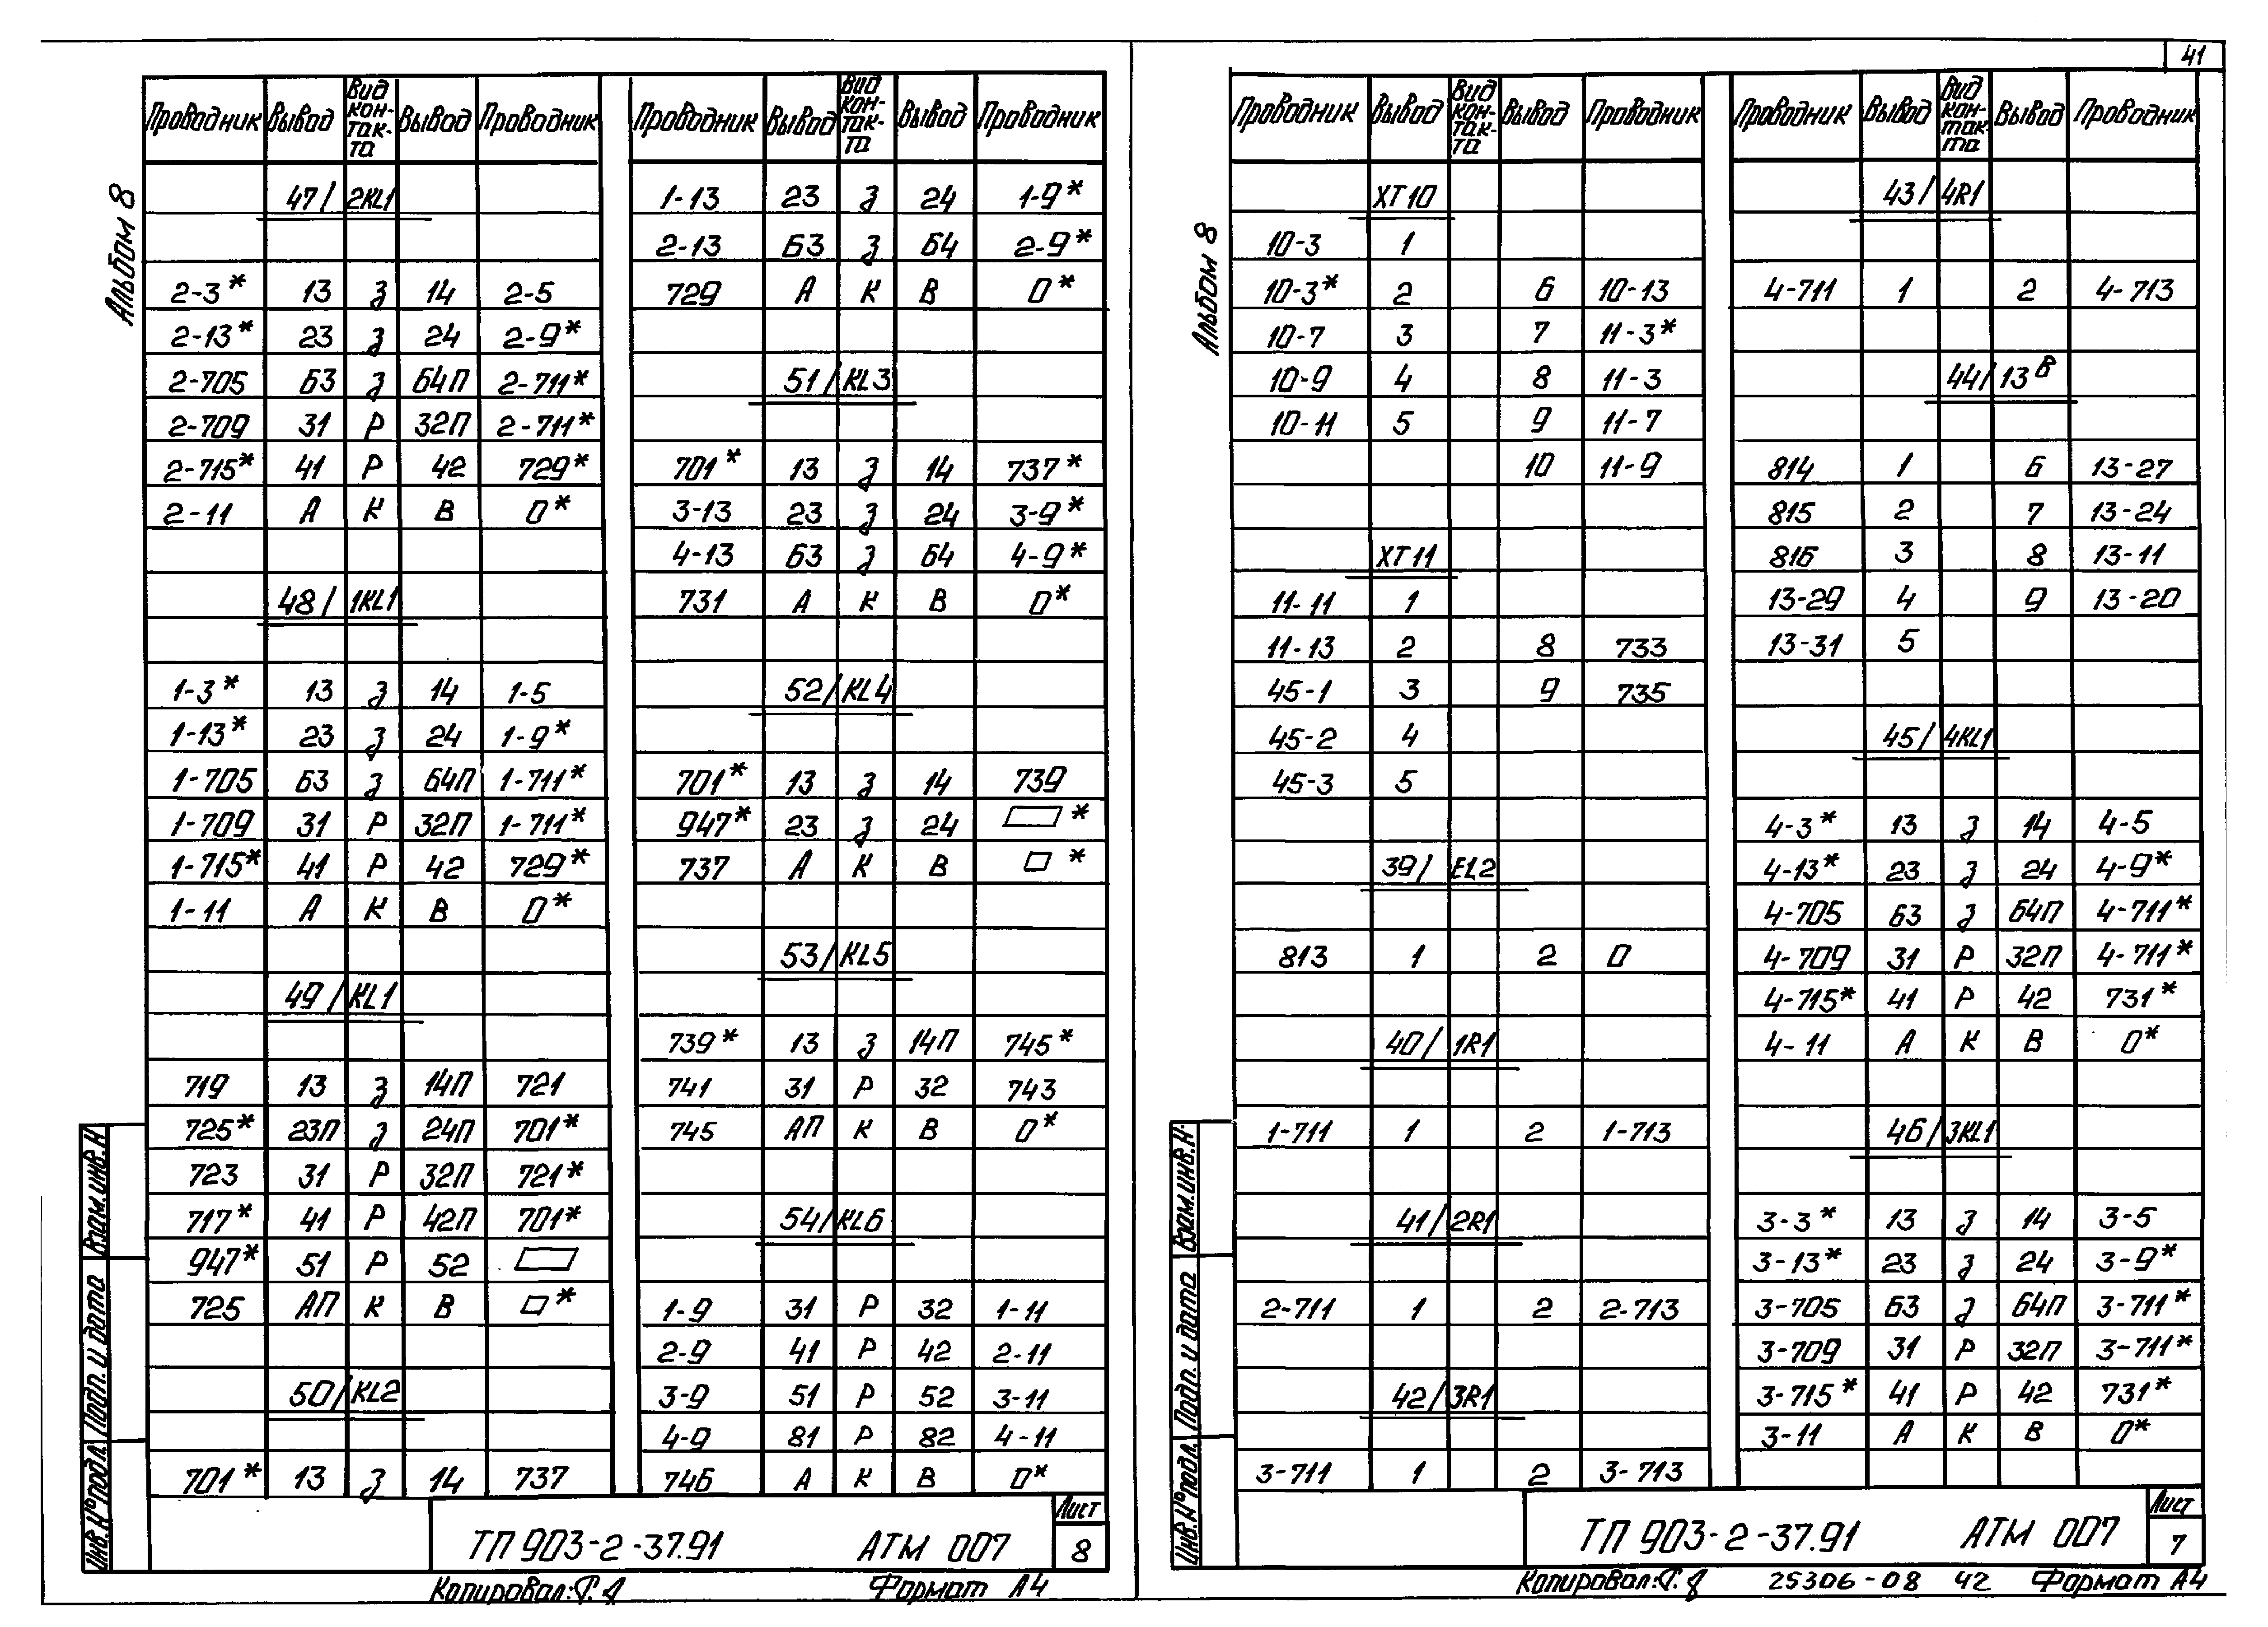 41
Альбом 8
Проводник Вывод Вид кон-так-та Вывод Проводник
47/ 2KL1
2-3* 13 З 14 2-5
2-13* 23 З 24 2-9*
2-705 63 З 64П 2-711*
2-709 31 Р 32П 2-711*
2-715* 41 Р 42 729*
2-11 А К В 0*
48/ 1KL1
1-3* 13 З 14 1-5
1-13* 23 З 24 1-9*
1-705 63 З 64П 1-711*
1-709 31 Р 32П 1-711*
1-715* 41 Р 42 729*
1-11 А К В 0*
49/ KL1
719 13 З 14П 721
725* 23П З 24П 701*
723 31 Р 32П 721*
717* 41 Р 42П 701*
947* 51 Р 52
725 АП К В *
50/ KL2
701* 13 З 14 737
Проводник Вывод Вид кон-так-та Вывод Проводник
1-13 23 З 24 1-9*
2-13 63 З 64 2-9*
729 А К В 0*
51/ KL3
701* 13 З 14 737*
3-13 23 З 24 3-9*
4-13 63 З 64 4-9*
731 А К В 0*
52/ KL4
701* 13 З 14 739
947* 23 З 24 *
737 А К В *
53/ KL5
739* 13 З 14П 745*
741 31 Р 32 743
745 АП К В 0*
54/ KL6
1-9 31 Р 32 1-11
2-9 41 Р 42 2-11
3-9 51 Р 52 3-11
4-9 81 Р 82 4-11
746 А К В 0*
Взам. инв. Н
Подп. и дата
Инв. N°подл.
ТП 903-2-37.91 АТМ 007
Лист
8
Копировал: Формат А4
Альбом 8
Проводник Вывод Вид кон-так-та Вывод Проводник
ХТ10
10-3 1
10-3* 2 6 10-13
10-7 3 7 11-3*
10-9 4 8 11-3
10-11 5 9 11-7
10 11-9
ХТ11
11-11 1
11-13 2 8 733
45-1 3 9 735
45-2 4
45-3 5
39/ EL2
813 1 2 0
40/ 1R1
1-711 1 2 1-713
41/ 2R1
2-711 1 2 2-713
42/ 3R1
3-711 1 2 3-713
Проводник Вывод Вид кон-так-та Вывод Проводник
43/ 4R1
4-711 1 2 4-713
44/ 13В
814 1 6 13-27
815 2 7 13-24
816 3 8 13-11
13-29 4 9 13-20
13-31 5
45/ 4KL1
4-3* 13 З 14 4-5
4-13* 23 З 24 4-9*
4-705 63 З 64П 4-711*
4-709 31 Р 32П 4-711*
4-715* 41 Р 42 731*
4-11 А К В 0*
46/ 3KL1
3-3* 13 З 14 3-5
3-13* 23 З 24 3-9*
3-705 63 З 64П 3-711*
3-709 31 Р 32П 3-711*
3-715* 41 Р 42 731*
3-11 А К В 0*
Взам. инв. Н.
Подп. и дата
Инв. N°подл.
ТП 903-2-37.91 АТМ 007
Лист
7
Копировал: 25306-08 42 Формат А4